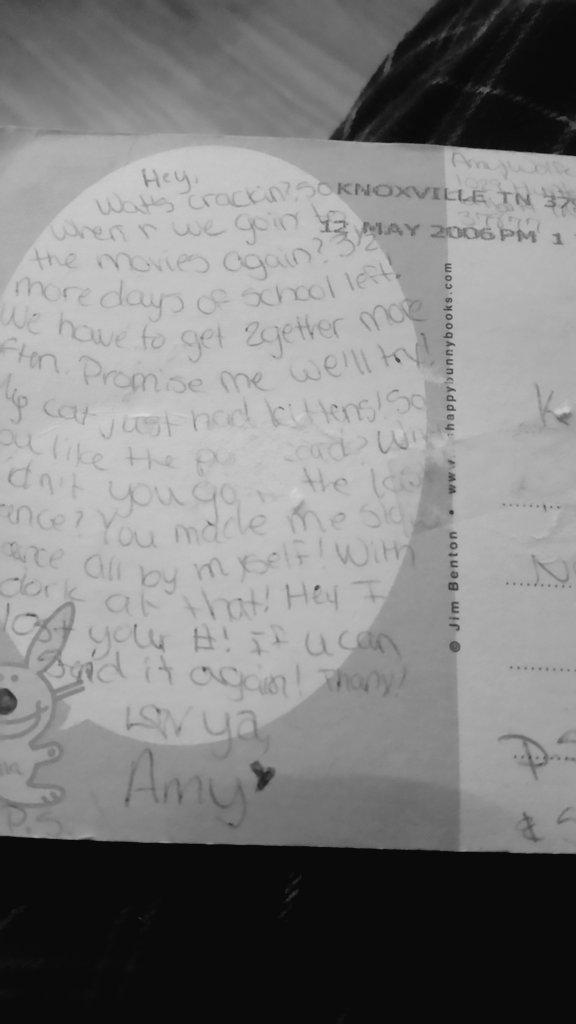 Hey,
Wats crackin? So
when r we goin to
the movies again? 3 1/2
more days of school left!
We have to get 2gether more
ften. Promise me we'll try!
cat just had kittens! So
ou like the card?
dn't you go the
ance? You made me
all by myself! With
dork at that! Hey I
lost your #! If u can
Send it again!
ya,
Amy
P.S
KNOXVILLE TN 37
12 MAY 2006 PM 1
Amy
© Jim Benton • www. happybunnybooks.com
K
N
D